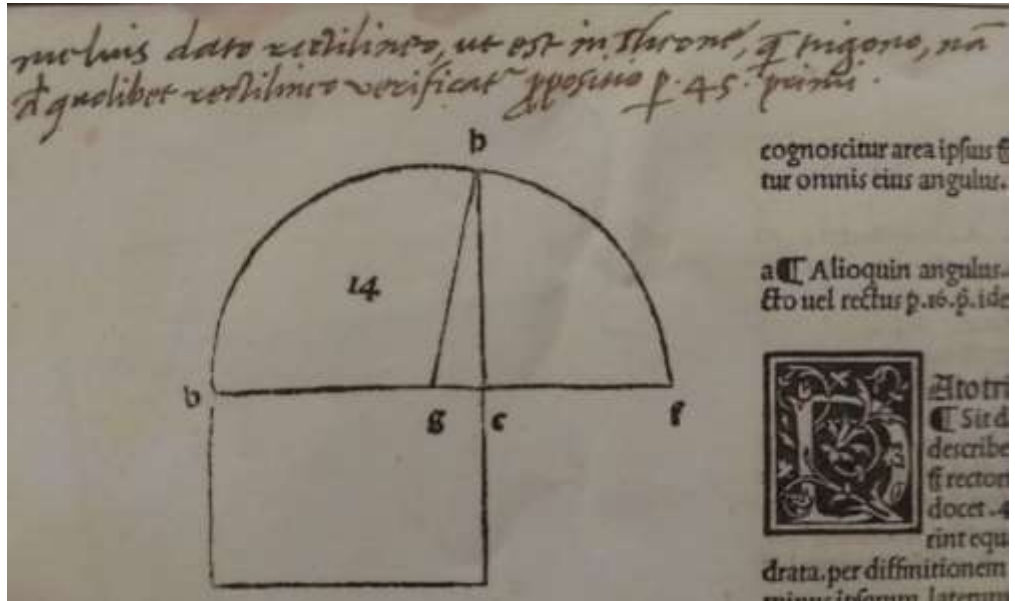 melius dato rectilineo, ut est in Theone, q̃ trigono, nã
d quolibet rectilineo verificat ꝓpositio p. 45. primi.
h
cognoscitur area ipsius
tur omnis eius angulus.
14
a ¶ Alioquin angulus
cto uel rectus p.16.p̃.ide
b
g c f
Ato tri
¶ Sit d
describe
rector
docet .4
rint equa
drata.per diffinitionem
minus ipsorum laterum